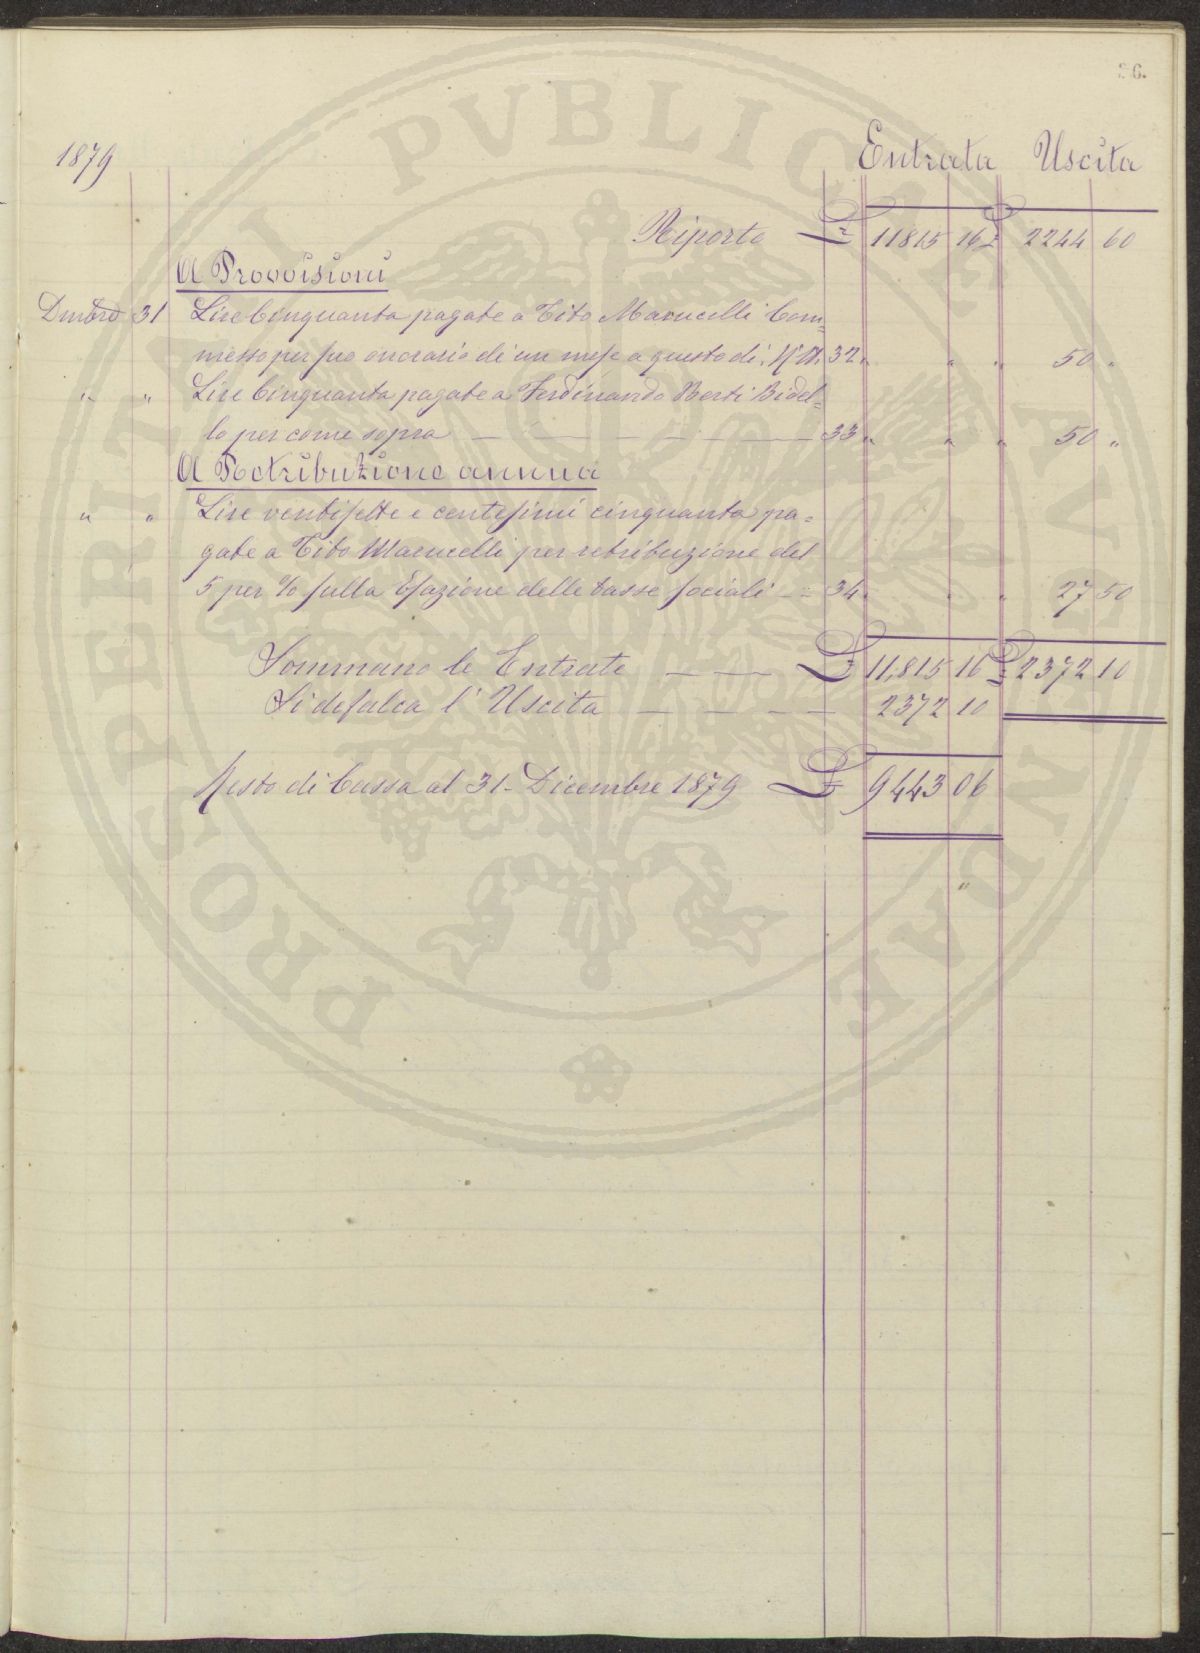 36.
1879 Entrata Uscita
Riporto £ 11815 16 £ 2244 60
A Provvisioni
Dmbre 31 Lire Cinquanta pagate a Tito Marucelli Com=
messo per suo onorario di un mese a questo dì. N.º 32 " " " 50 "
" " Lire Cinquanta pagate a Ferdinando Berti Bidel=
lo per come sopra — — — — — — 33 " " " 50 "
A Retribuzione annua
" " Lire ventisette e centesimi cinquanta pa=
gate a Tito Marucelli per retribuzione del
5 per % sulla Esazione delle tasse sociali — = 34 " " " 27 50
Sommano le Entrate — — £ 11,815 16 £ 2372 10
Si defalca l'Uscita — — — — 2372 10
Resto di Cassa al 31 - Dicembre 1879 £ 9443 06
"
PROSPERITATI PVBLICAE AVGENDAE